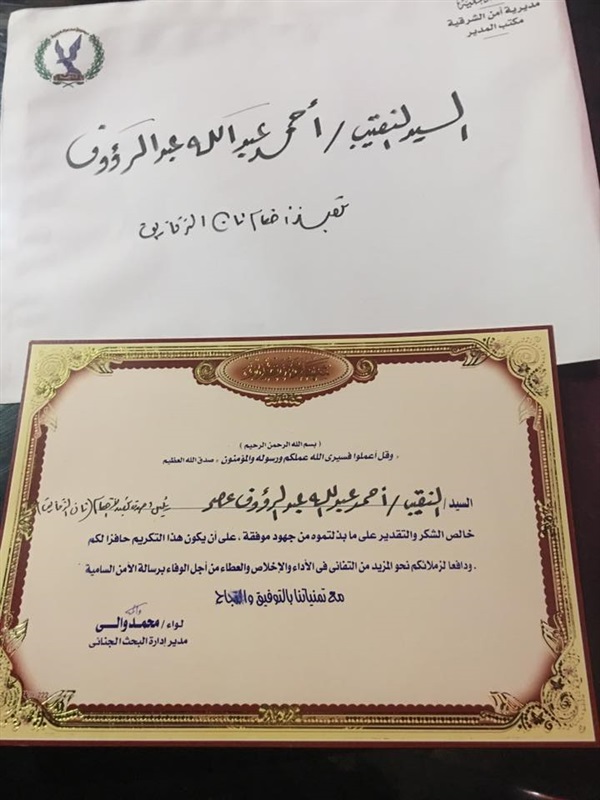 مديرية أمن الشرقية
مكتب المدير
السيد النقيب / أحمد عبد الله عبد الرؤوف
تنفيذ أحكام ثان الزقازيق
( بسم الله الرحمن الرحيم )
« وقل أعملوا فسيرى الله عملكم ورسوله والمؤمنون » صدق الله العظيم
السيد / النقيب / أحمد عبد الله عبد الرؤوف
خالص الشكر والتقدير على ما بذلتموه من جهود موفقة ، على أن يكون هذا التكريم حافزا لكم
، ودافعا لزملائكم نحو المزيد من التفانى فى الأداء والإخلاص والعطاء من أجل الوفاء برسالة الأمن السامية
مع تمنياتنا بالتوفيق والنجاح
لواء / محمد والى
مدير إدارة البحث الجنائى